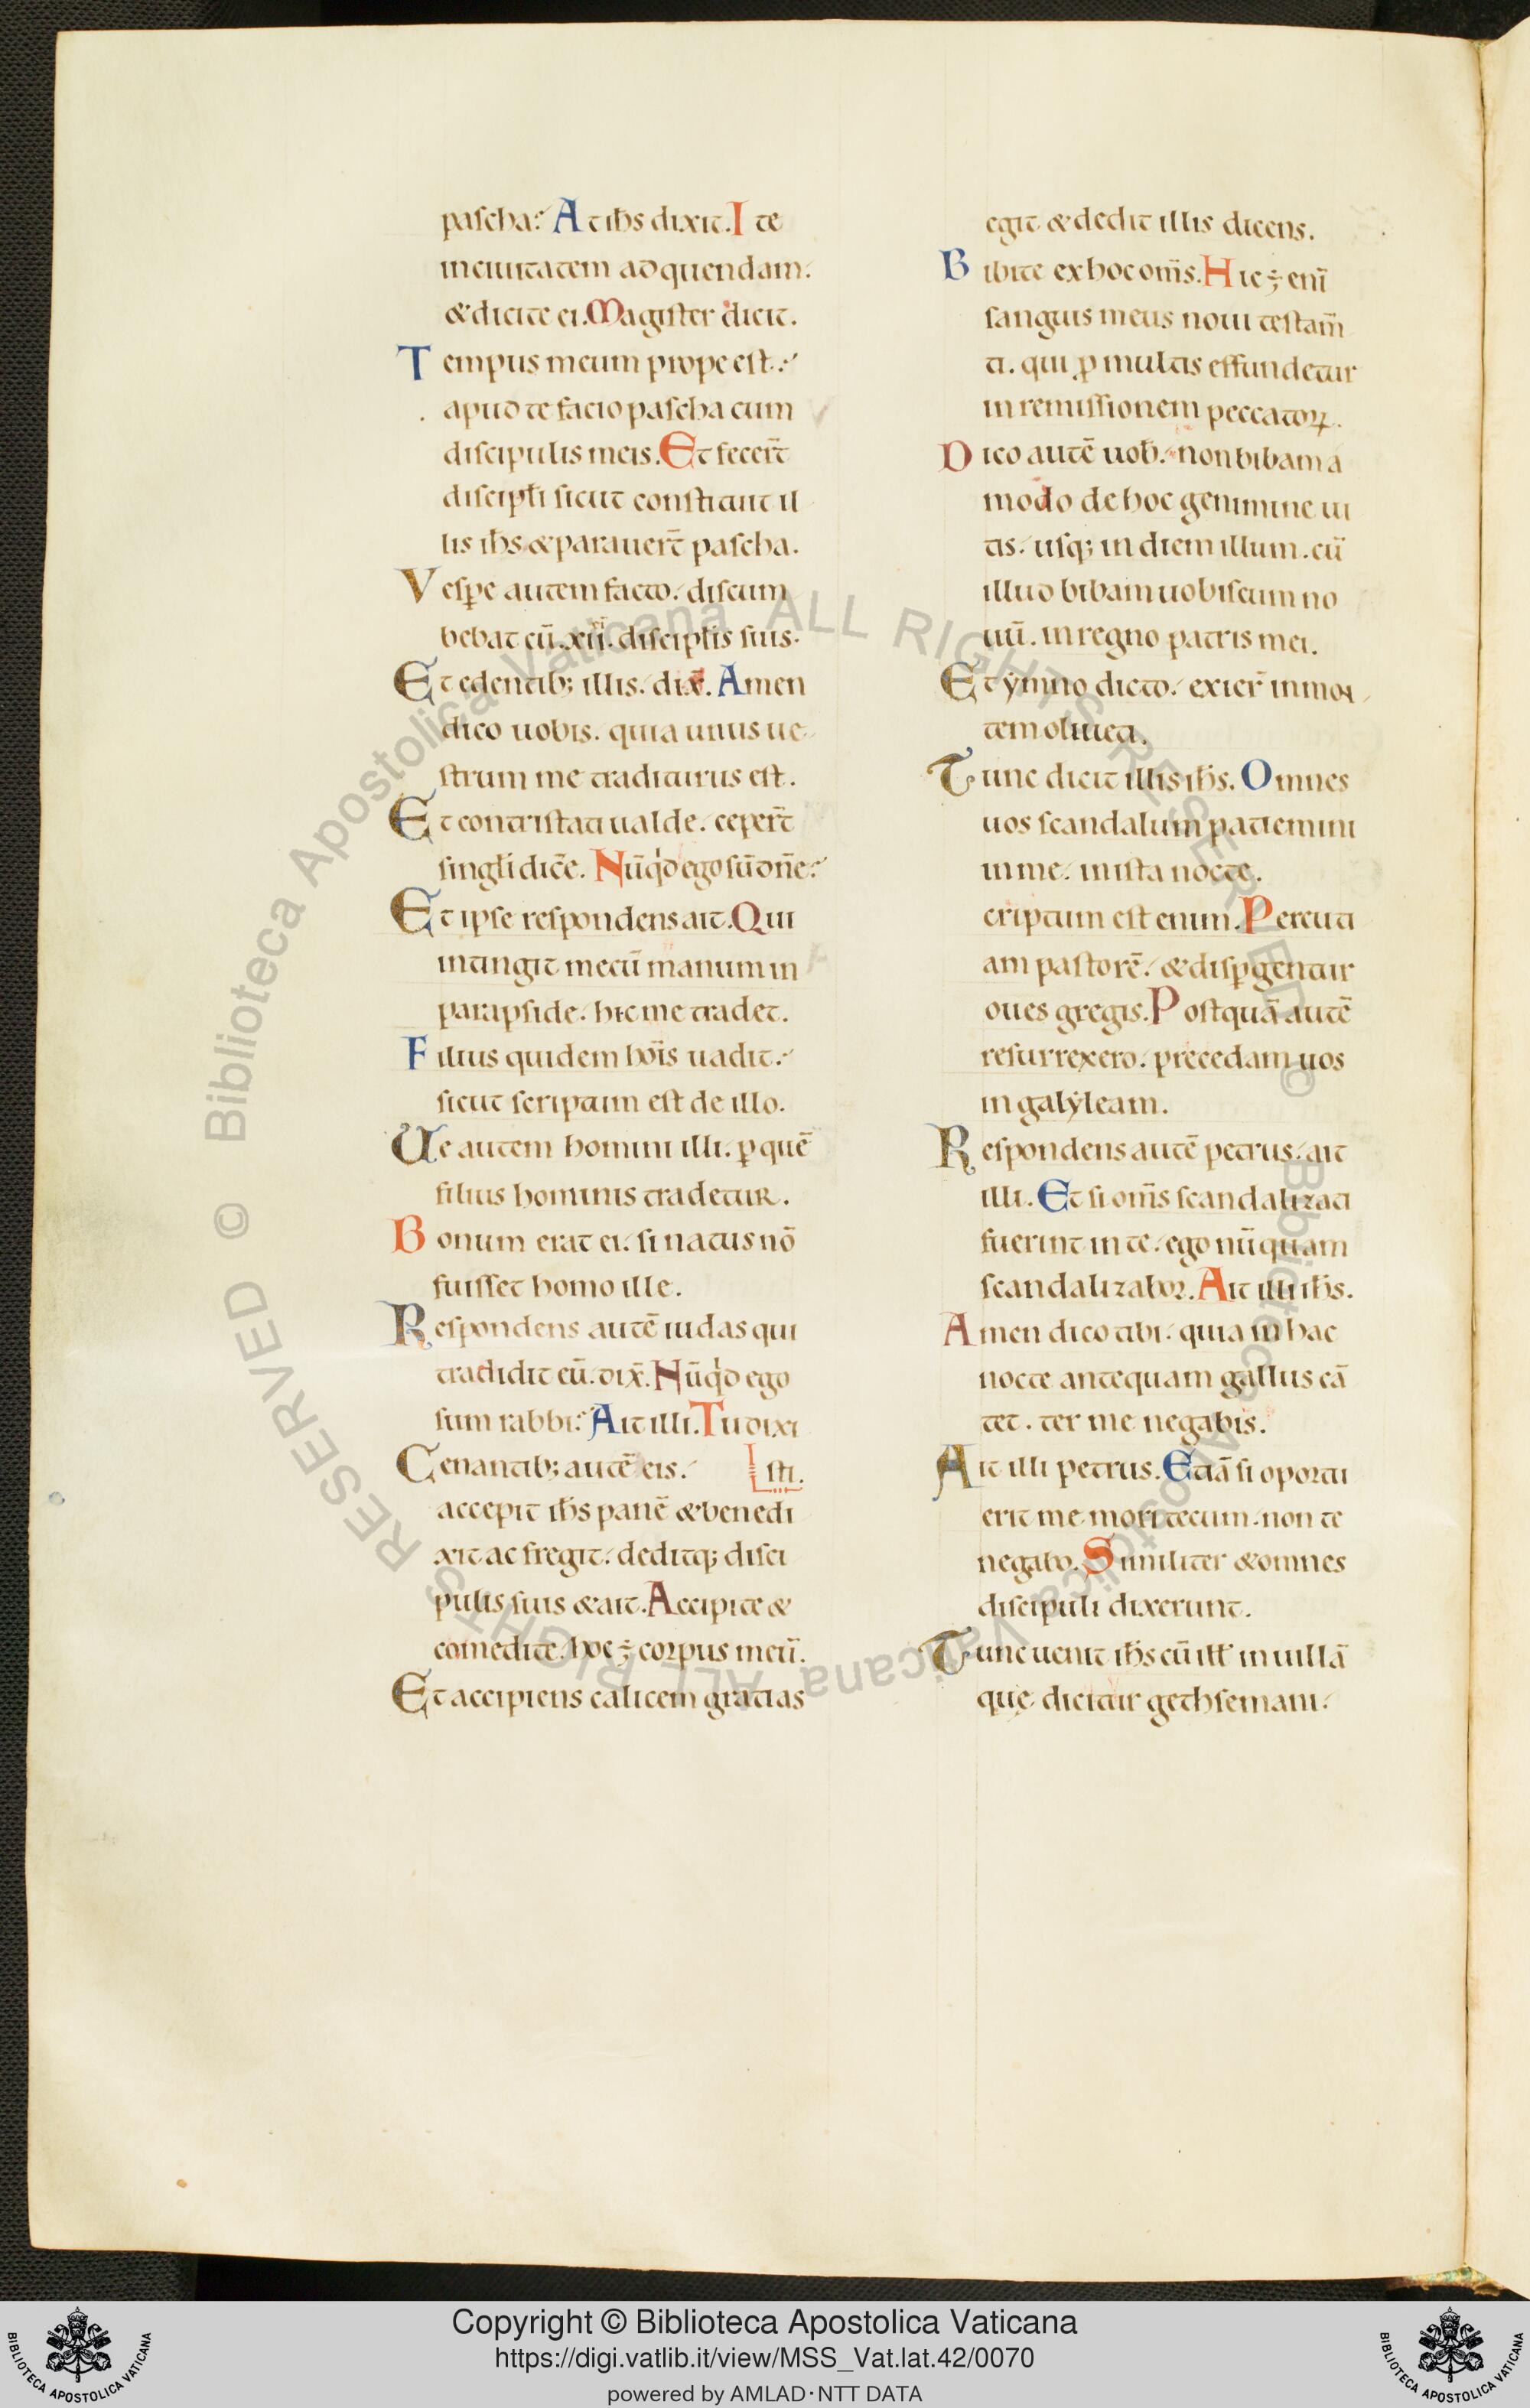 pascha? At ih̅s dixit. I te
in ciuitatem ad quendam.
& dicite ei. Magister dicit.
Tempus meum prope est.
apud te facio pascha cum
discipulis meis. Et fecer̅t
discipl̅i sicut constituit il
lis ih̅s. & parauer̅t pascha.
Vesp̅e autem facto. discum
bebat cu̅ .xii. discipl̅is suis.
Et edentib; illis. dix̅. Amen
dico uobis. quia unus ue
strum me traditurus est.
Et contristati ualde. ceper̅t
singl̅i dice̅. Nu̅q̇d ego su̅ dn̅e?
Et ipse respondens ait. Qui
intingit mecu̅ manum in
parapside. hic me tradet.
Filius quidem ho̅is uadit.
sicut scriptum est de illo.
Ue autem homini illi. ꝑ que̅
filius hominis tradetur.
Bonum erat ei. si natus no̅
fuisset homo ille.
Respondens aute̅ iudas qui
tradidit eu̅. dix̅. Nu̅q̇d ego
sum rabbi? Ait illi. Tu dixi
Cenantib; aute̅ eis. sti.
accepit ih̅s pane̅ & benedi
xit ac fregit. deditq; disci
pulis suis & ait. Accipite &
comedite. hoc ÷ corpus meu̅.
Et accipiens calicem gratias
egit & dedit illis dicens.
Bibite ex hoc om̅s. Hic ÷ eni̅
sanguis meus noui testam̅
ti. qui ꝓ multis effundetur
in remissionem peccatoꝝ.
Dico aute̅ uob̅. non bibam a
modo de hoc genimine ui
tis. usq; in diem illum. cu̅
illud bibam uobiscum no
uu̅. in regno patris mei.
Et ẏmno dicto. exier̅ in mon
tem oliueti.
Tunc dicit illis ih̅s. Omnes
uos scandalum patiemini
in me. in ista nocte.
criptum est enim. Percuti
am pastore̅. & disꝑgentur
oues gregis. Postqua̅ aute̅
resurrexero. precedam uos
in galẏleam.
Respondens aute̅ petrus. ait
illi. Et si om̅s scandalizati
fuerint in te. ego nu̅quam
scandalizabor. Ait illi ih̅s.
Amen dico tibi. quia in hac
nocte antequam gallus ca̅
tet. ter me negabis.
Ait illi petrus. Etia̅ si oportu
erit me mori tecum. non te
negabo. Similiter & omnes
discipuli dixerunt.
Tunc uenit ih̅s cu̅ ill̅ in uilla̅
quę dicitur gethsemani.
Biblioteca Apostolica Vaticana ALL RIGHTS RESERVED ©
Biblioteca Apostolica Vaticana ALL RIGHTS RESERVED ©
Copyright © Biblioteca Apostolica Vaticana
https://digi.vatlib.it/view/MSS_Vat.lat.42/0070
powered by AMLAD·NTT DATA
BIBLIOTECA APOSTOLICA VATICANA
BIBLIOTECA APOSTOLICA VATICANA